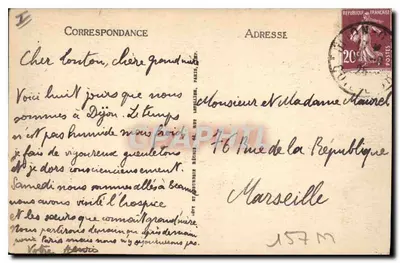 I
CORRESPONDANCE
ADRESSE
RÉPUBLIQUE FRANÇAISE
20c
POSTES
Cher tonton, chère grand'mère
Voici huit jours que nous
sommes à Dijon. Le temps
n'est pas humide mais
je fais de vigoureux gueuletons
et je dors consciencieusement.
Samedi nous sommes allés à Beaune
nous avons visité l'hospice
et les sœurs que connaît grand'mère.
Nous partirons demain ou après demain
pour Paris mais nous n'y séjournerons pas.
Votre
Monsieur et Madame Maurel
16 Rue de la République
Marseille
157 M